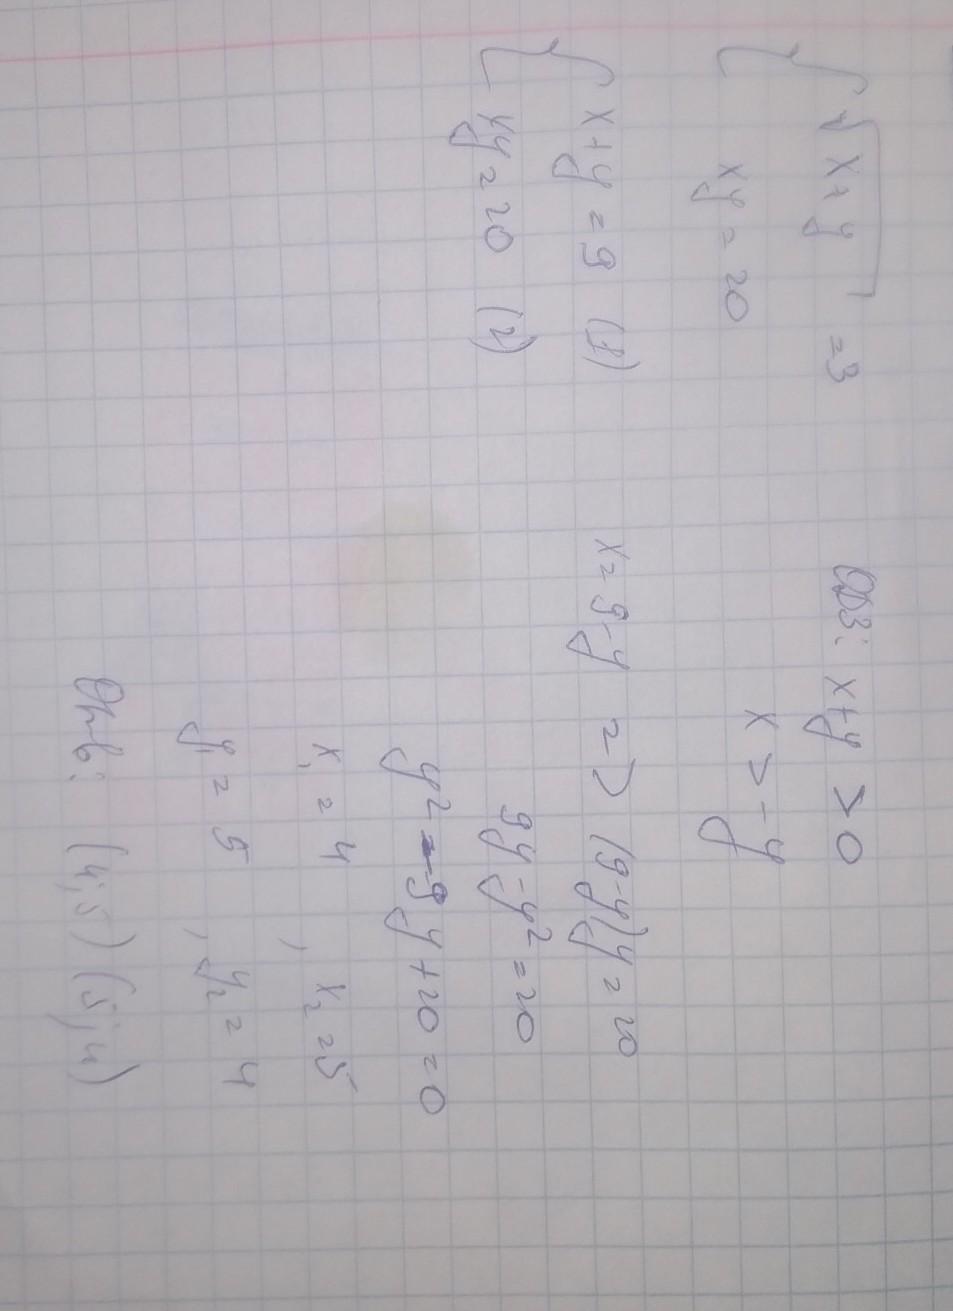 { √x+y = 3
xy = 20
ОДЗ: x+y > 0
x > -y
{ x+y = 9 (1)
xy = 20 (2)
x = 9-y => (9-y)y = 20
9y - y² = 20
y² - 9y + 20 = 0
x₁ = 4 , x₂ = 5
y₁ = 5 , y₂ = 4
Отв: (4;5) (5;4)